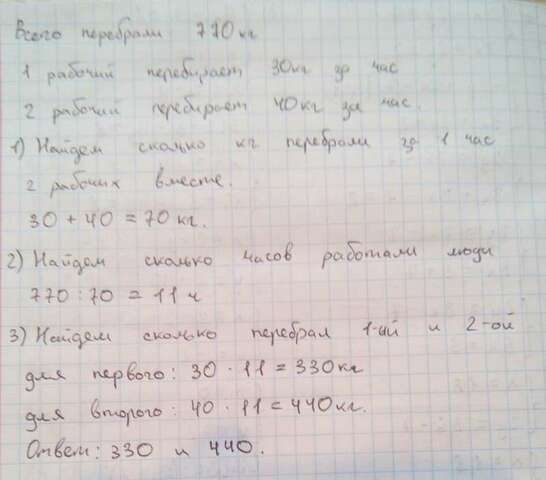 Всего перебрали 770 кг
1 рабочий перебирает 30кг за час
2 рабочий перебирает 40кг за час.
1) Найдем сколько кг перебрали за 1 час
2 рабочих вместе.
30 + 40 = 70 кг.
2) Найдем сколько часов работали люди
770 : 70 = 11 ч
3) Найдем сколько перебрал 1-ый и 2-ой
для первого: 30 · 11 = 330кг
для второго: 40 · 11 = 440кг.
Ответ: 330 и 440.